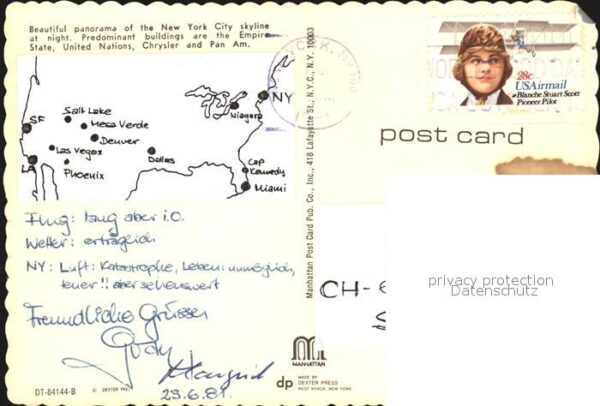 Beautiful panorama of the New York City skyline
at night. Predominant buildings are the Empire
State, United Nations, Chrysler and Pan Am.
28c
USAirmail
Blanche Stuart Scott
Pioneer Pilot
post card
Salt Lake
SF
Mesa Verde
Denver
Las Vegas
LA
Phoenix
Dallas
NY
Niagara
Cap
Kennedy
Miami
Flug: lang aber i.O.
Wetter: erträglich
NY: Luft: Katastrophe, Leben: unmöglich,
teuer!! aber sehenswert
Freundliche Grüsse
23.6.81.
Manhattan Post Card Pub. Co., Inc., 418 Lafayette St., N.Y.C., N.Y. 10003
CH-6
privacy protection
Datenschutz
MANHATTAN
dp
MADE BY
DEXTER PRESS
WEST NYACK, NEW YORK
DT-84144-B
© DEXTER PRE